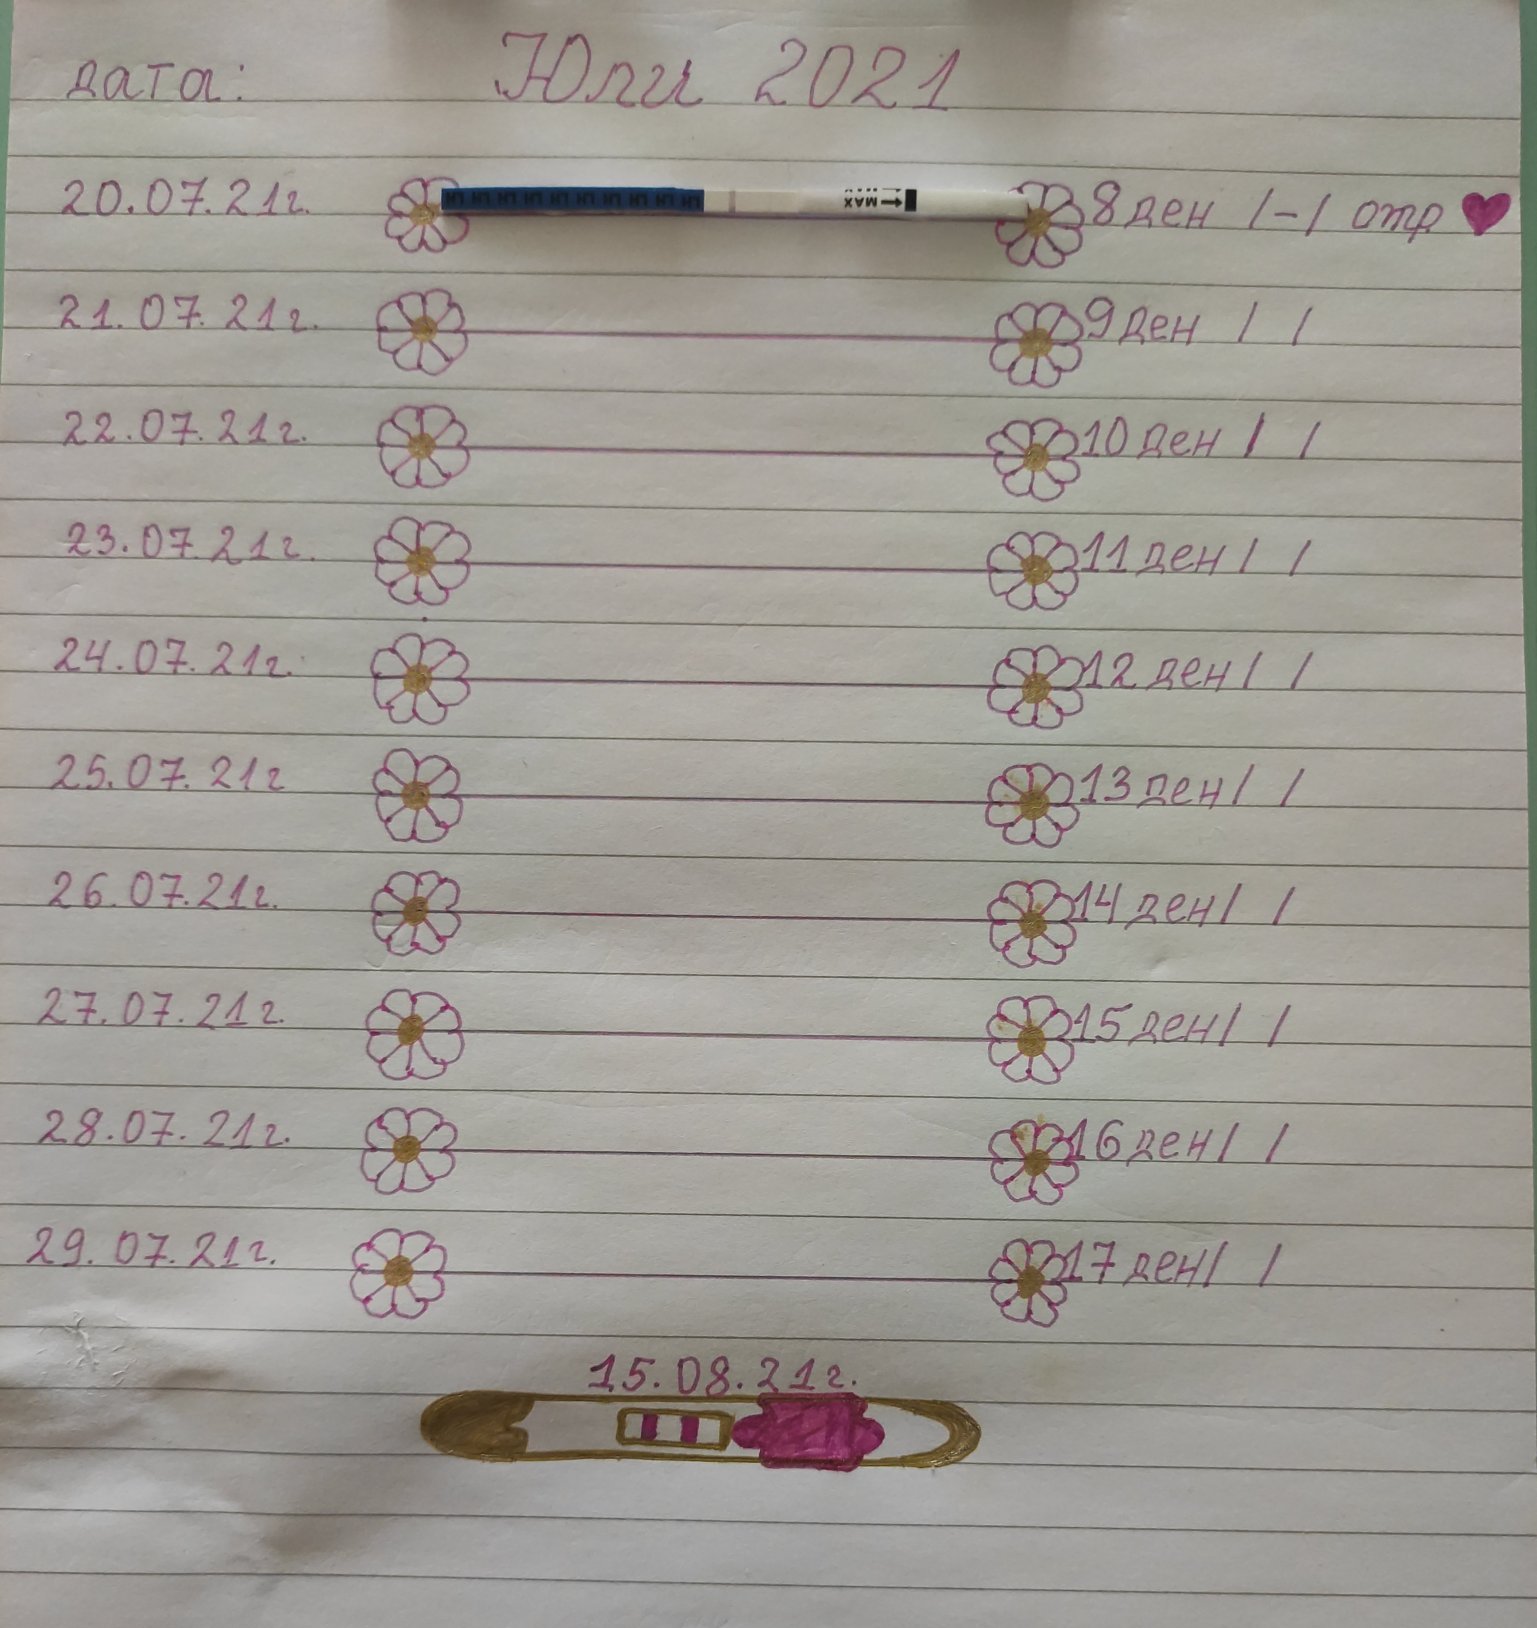 дата: Юли 2021
20.07.21г. LH LH LH LH LH LH LH LH LH LH MAX 8 ден /-/ отр
21.07.21г. 9 ден / /
22.07.21г. 10 ден / /
23.07.21г. 11 ден / /
24.07.21г. 12 ден / /
25.07.21г 13 ден / /
26.07.21г. 14 ден / /
27.07.21г. 15 ден / /
28.07.21г. 16 ден / /
29.07.21г. 17 ден / /
15.08.21г.